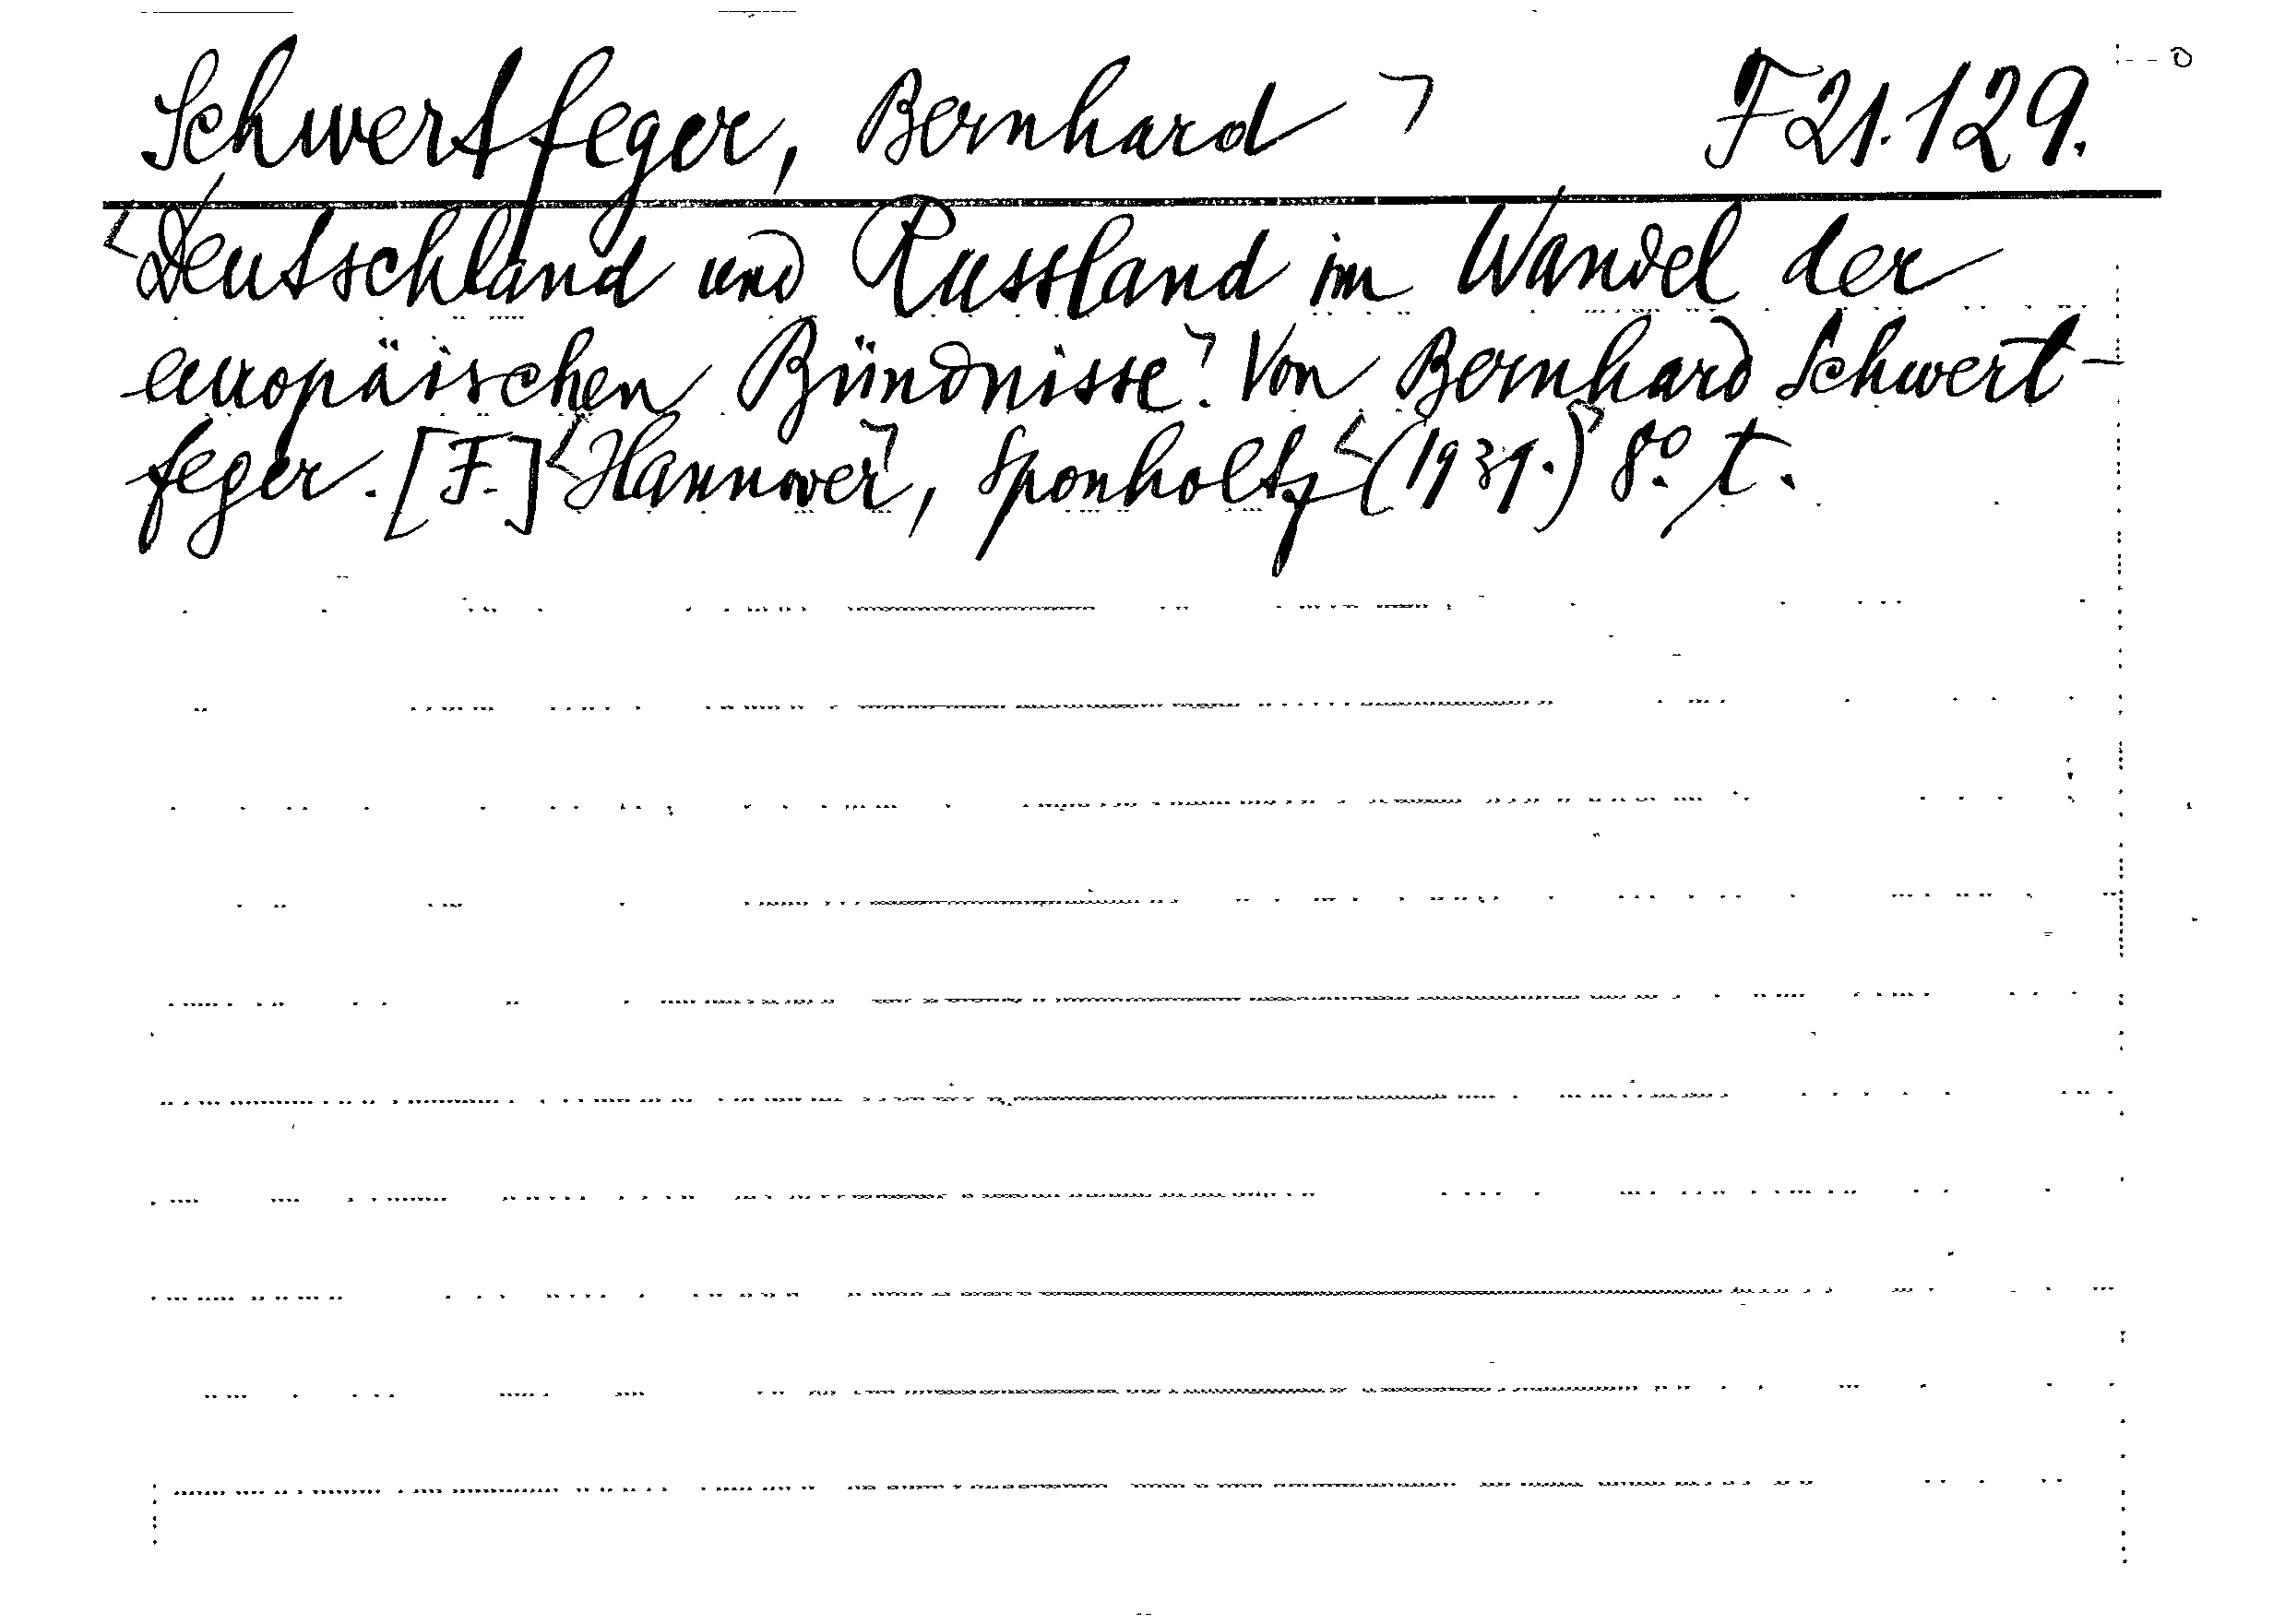 Schwertfeger, Bernhard F21.129.
Deutschland und Russland im Wandel der
europäischen Bündnisse. Von Bernhard Schwert-
feger. [F.] Hannover, Sponholtz (1939.) 8º. t.